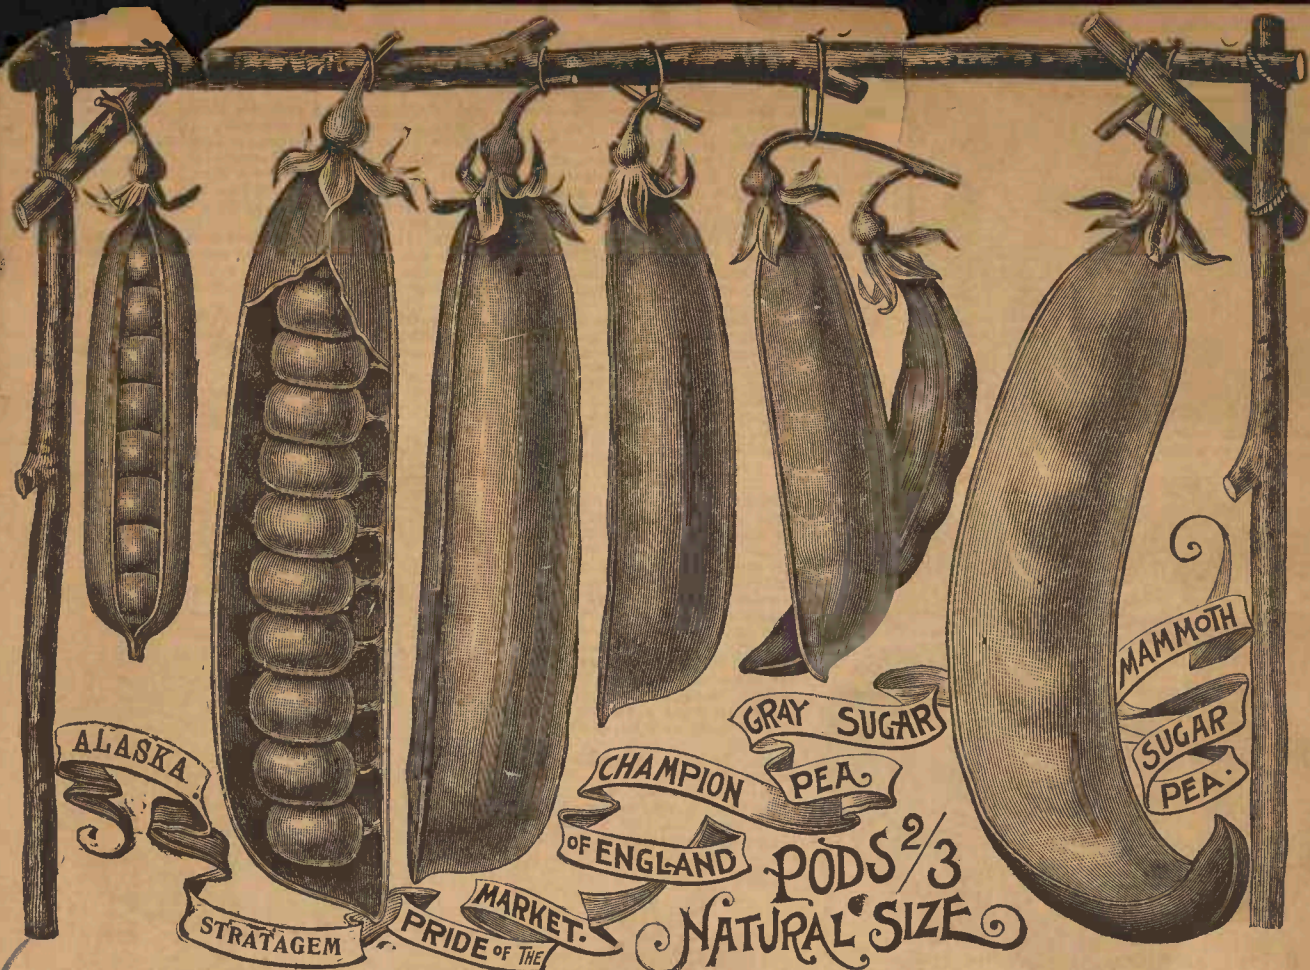 ALASKA.
STRATAGEM
PRIDE OF THE
MARKET.
CHAMPION
OF ENGLAND
GRAY SUGAR
PEA
MAMMOTH
SUGAR
PEA.
PODS 2/3
NATURAL SIZE